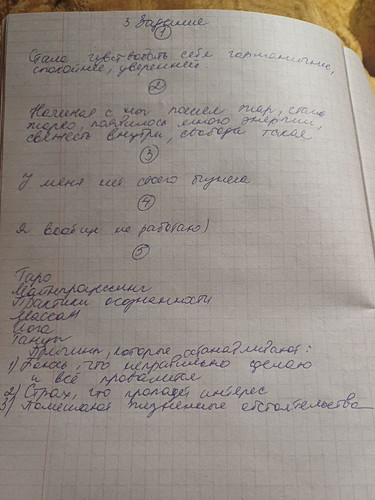 3 Задание
1
Стала чувствовать себя гармоничнее,
спокойнее, увереннее.
2
Начиная с ног пошел жар, стало
жарко, появилось много энергии,
свежесть внутри, свобода такая
3
У меня нет своего бизнеса
4
Я вообще не работаю)
5
Таро
Матнрацсинг
Практики осознанности
Массаж
Йога
Танцы
Причины, которые останавливают:
1) Боюсь, что неправильно сделаю
и всё провалится
2) Страх, что пропадёт интерес
3) Помешают жизненные обстоятельства